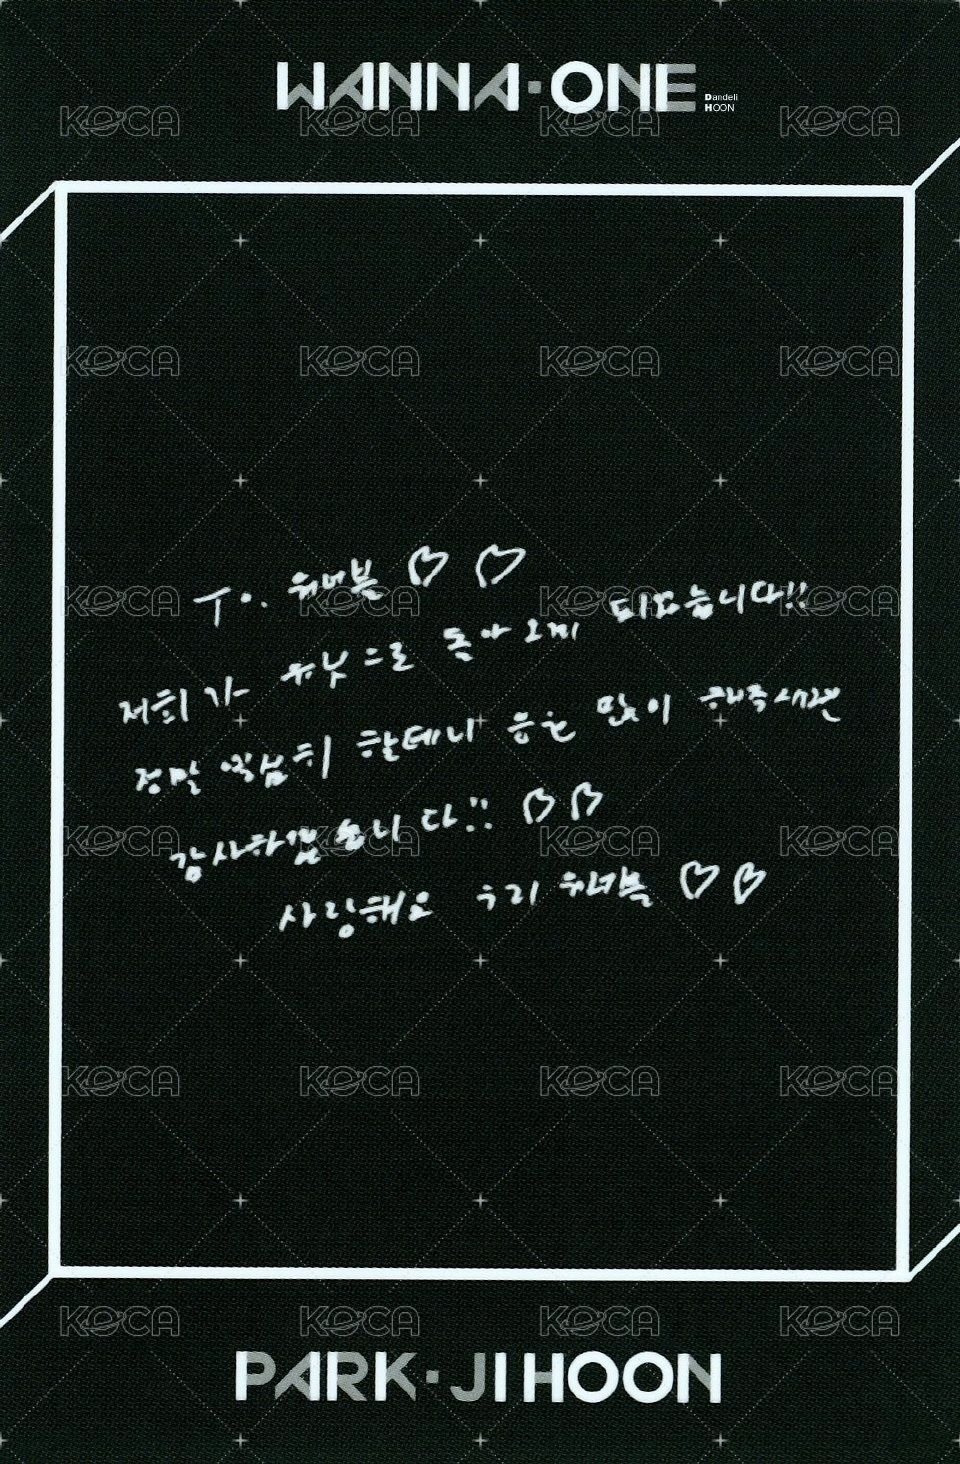 WANNA·ONE
Dandeli
HOON
To. 워너블 ♡ ♡
저희가 유닛으로 돌아오게 되었습니다!!
정말 열심히 할테니 응원 많이 해주시면
감사하겠습니다!! ♡ ♡
사랑해요 우리 워너블 ♡ ♡
PARK·JI HOON
KOCA